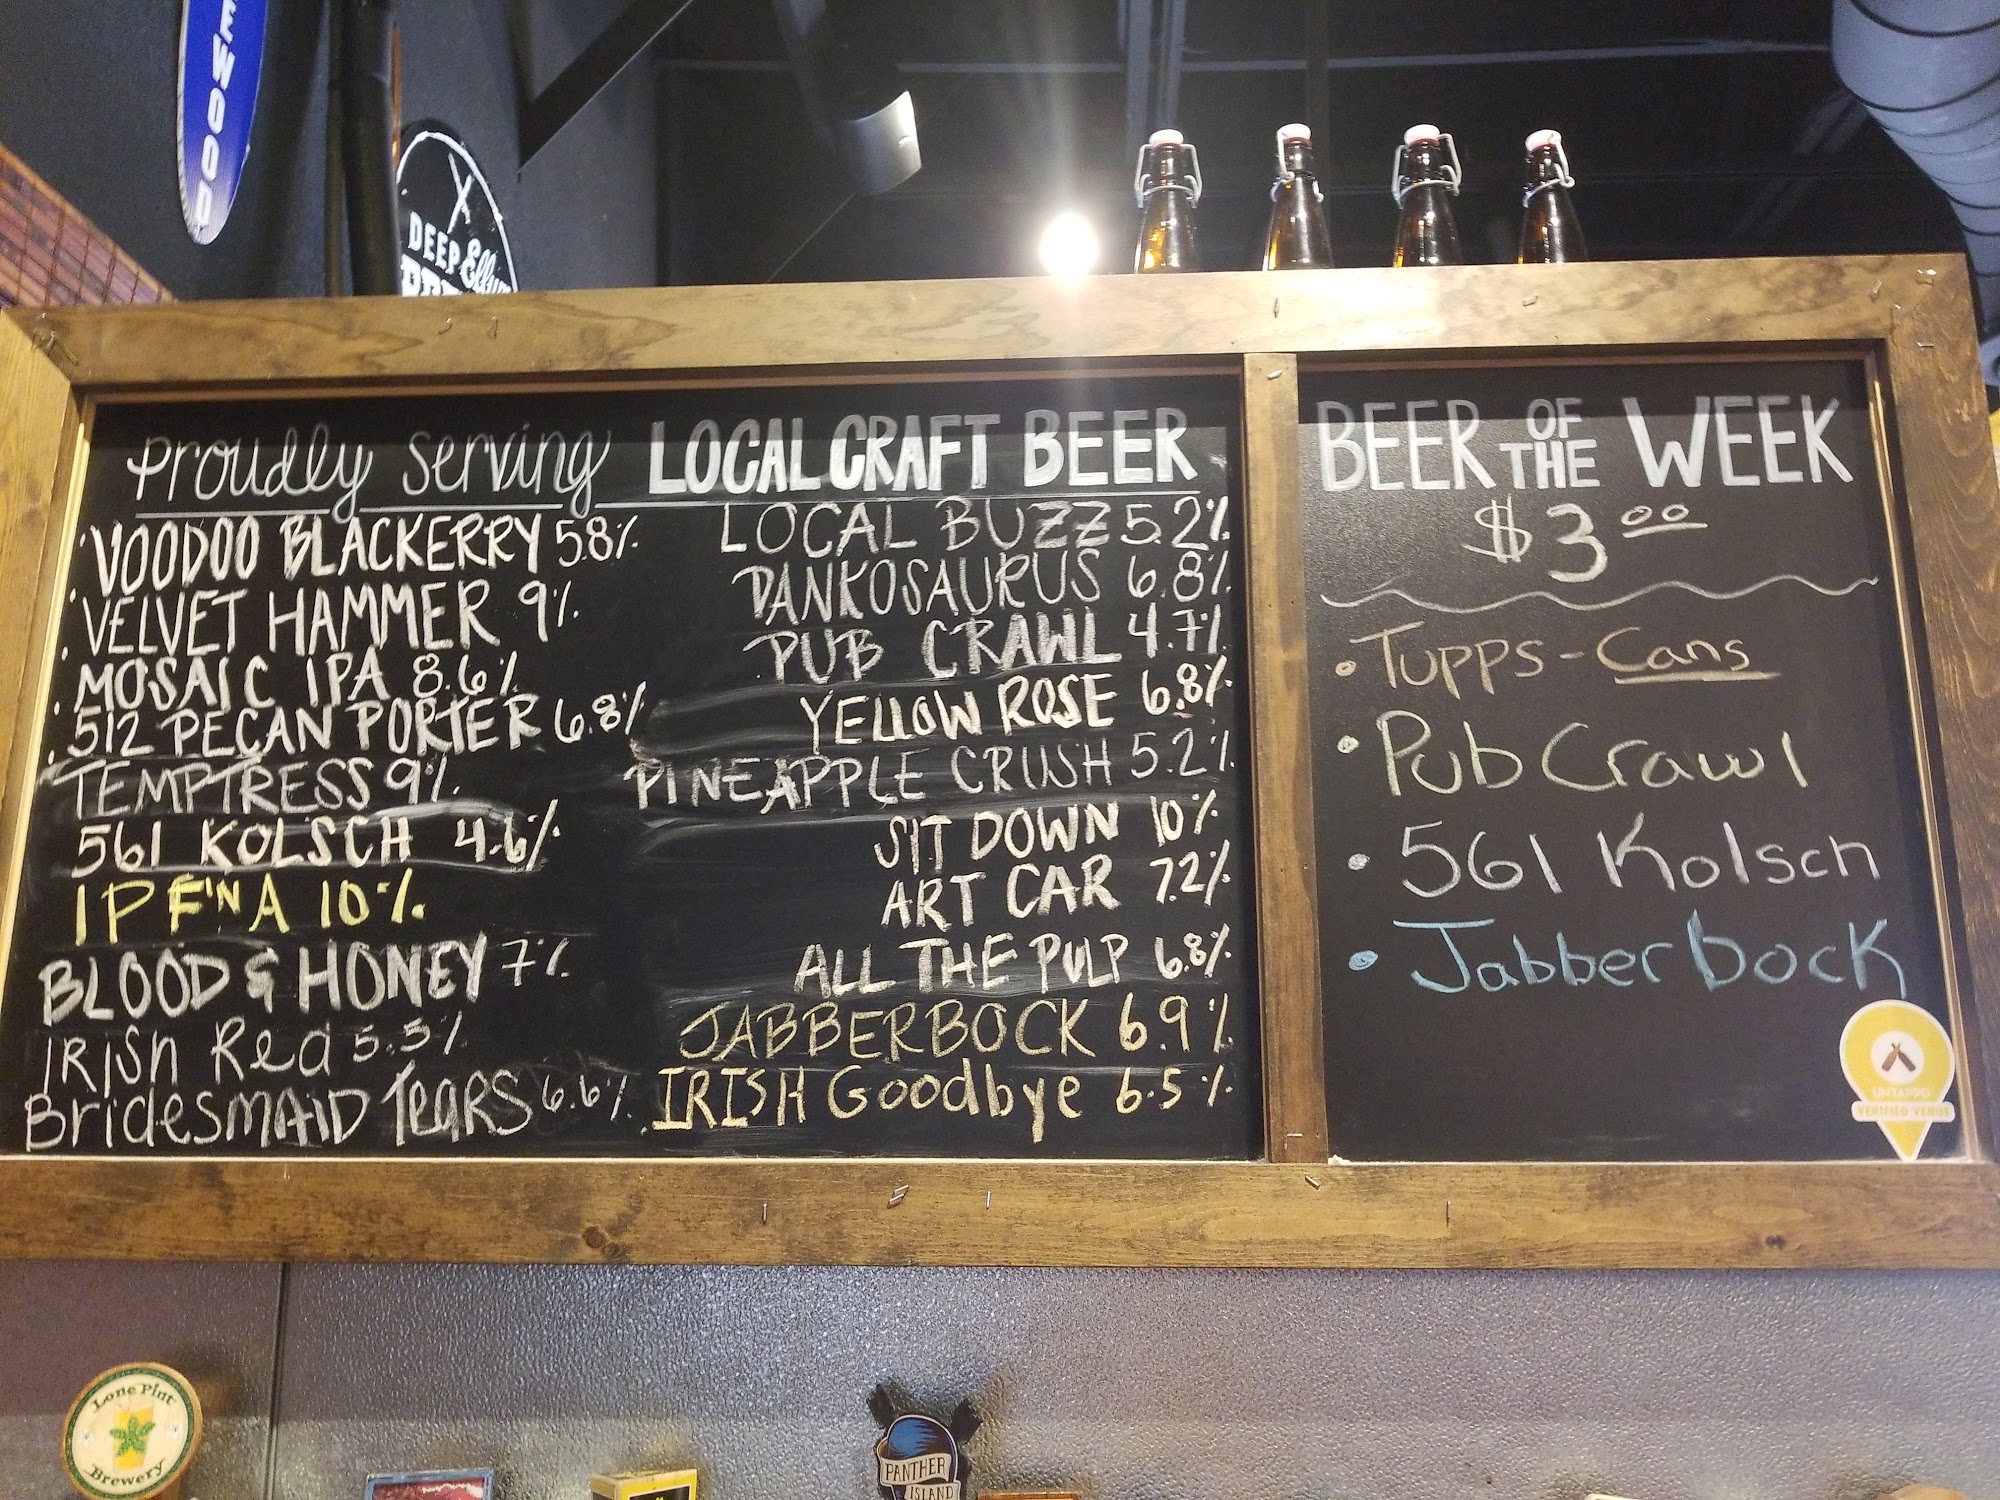 EWOOD
DEEP Ellum
Proudly Serving LOCAL CRAFT BEER
VOODOO BLACKERRY 5.8%
VELVET HAMMER 9%
MOSAIC IPA 8.6%
512 PECAN PORTER 6.8%
TEMPTRESS 9%
561 KOLSCH 4.6%
IPF'NA 10%
BLOOD & HONEY 7%
IRISH Red 5.5%
BRidesmAID TeARS 6.6%
LOCAL BUZZ 5.2%
DANKOSAURUS 6.8%
PUB CRAWL 4.7%
YELLOW ROSE 6.8%
PINEAPPLE CRUSH 5.2%
SIT DOWN 10%
ART CAR 7.2%
ALL THE PULP 6.8%
JABBERBOCK 6.9%
IRISH Goodbye 6.5%
BEER OF THE WEEK
$3.00
• Tupps - Cans
• Pub Crawl
• 561 Kolsch
• Jabberbock
UNTAPPD
VERIFIED VENUE
Lone Pint
Brewery
PANTHER
ISLAND